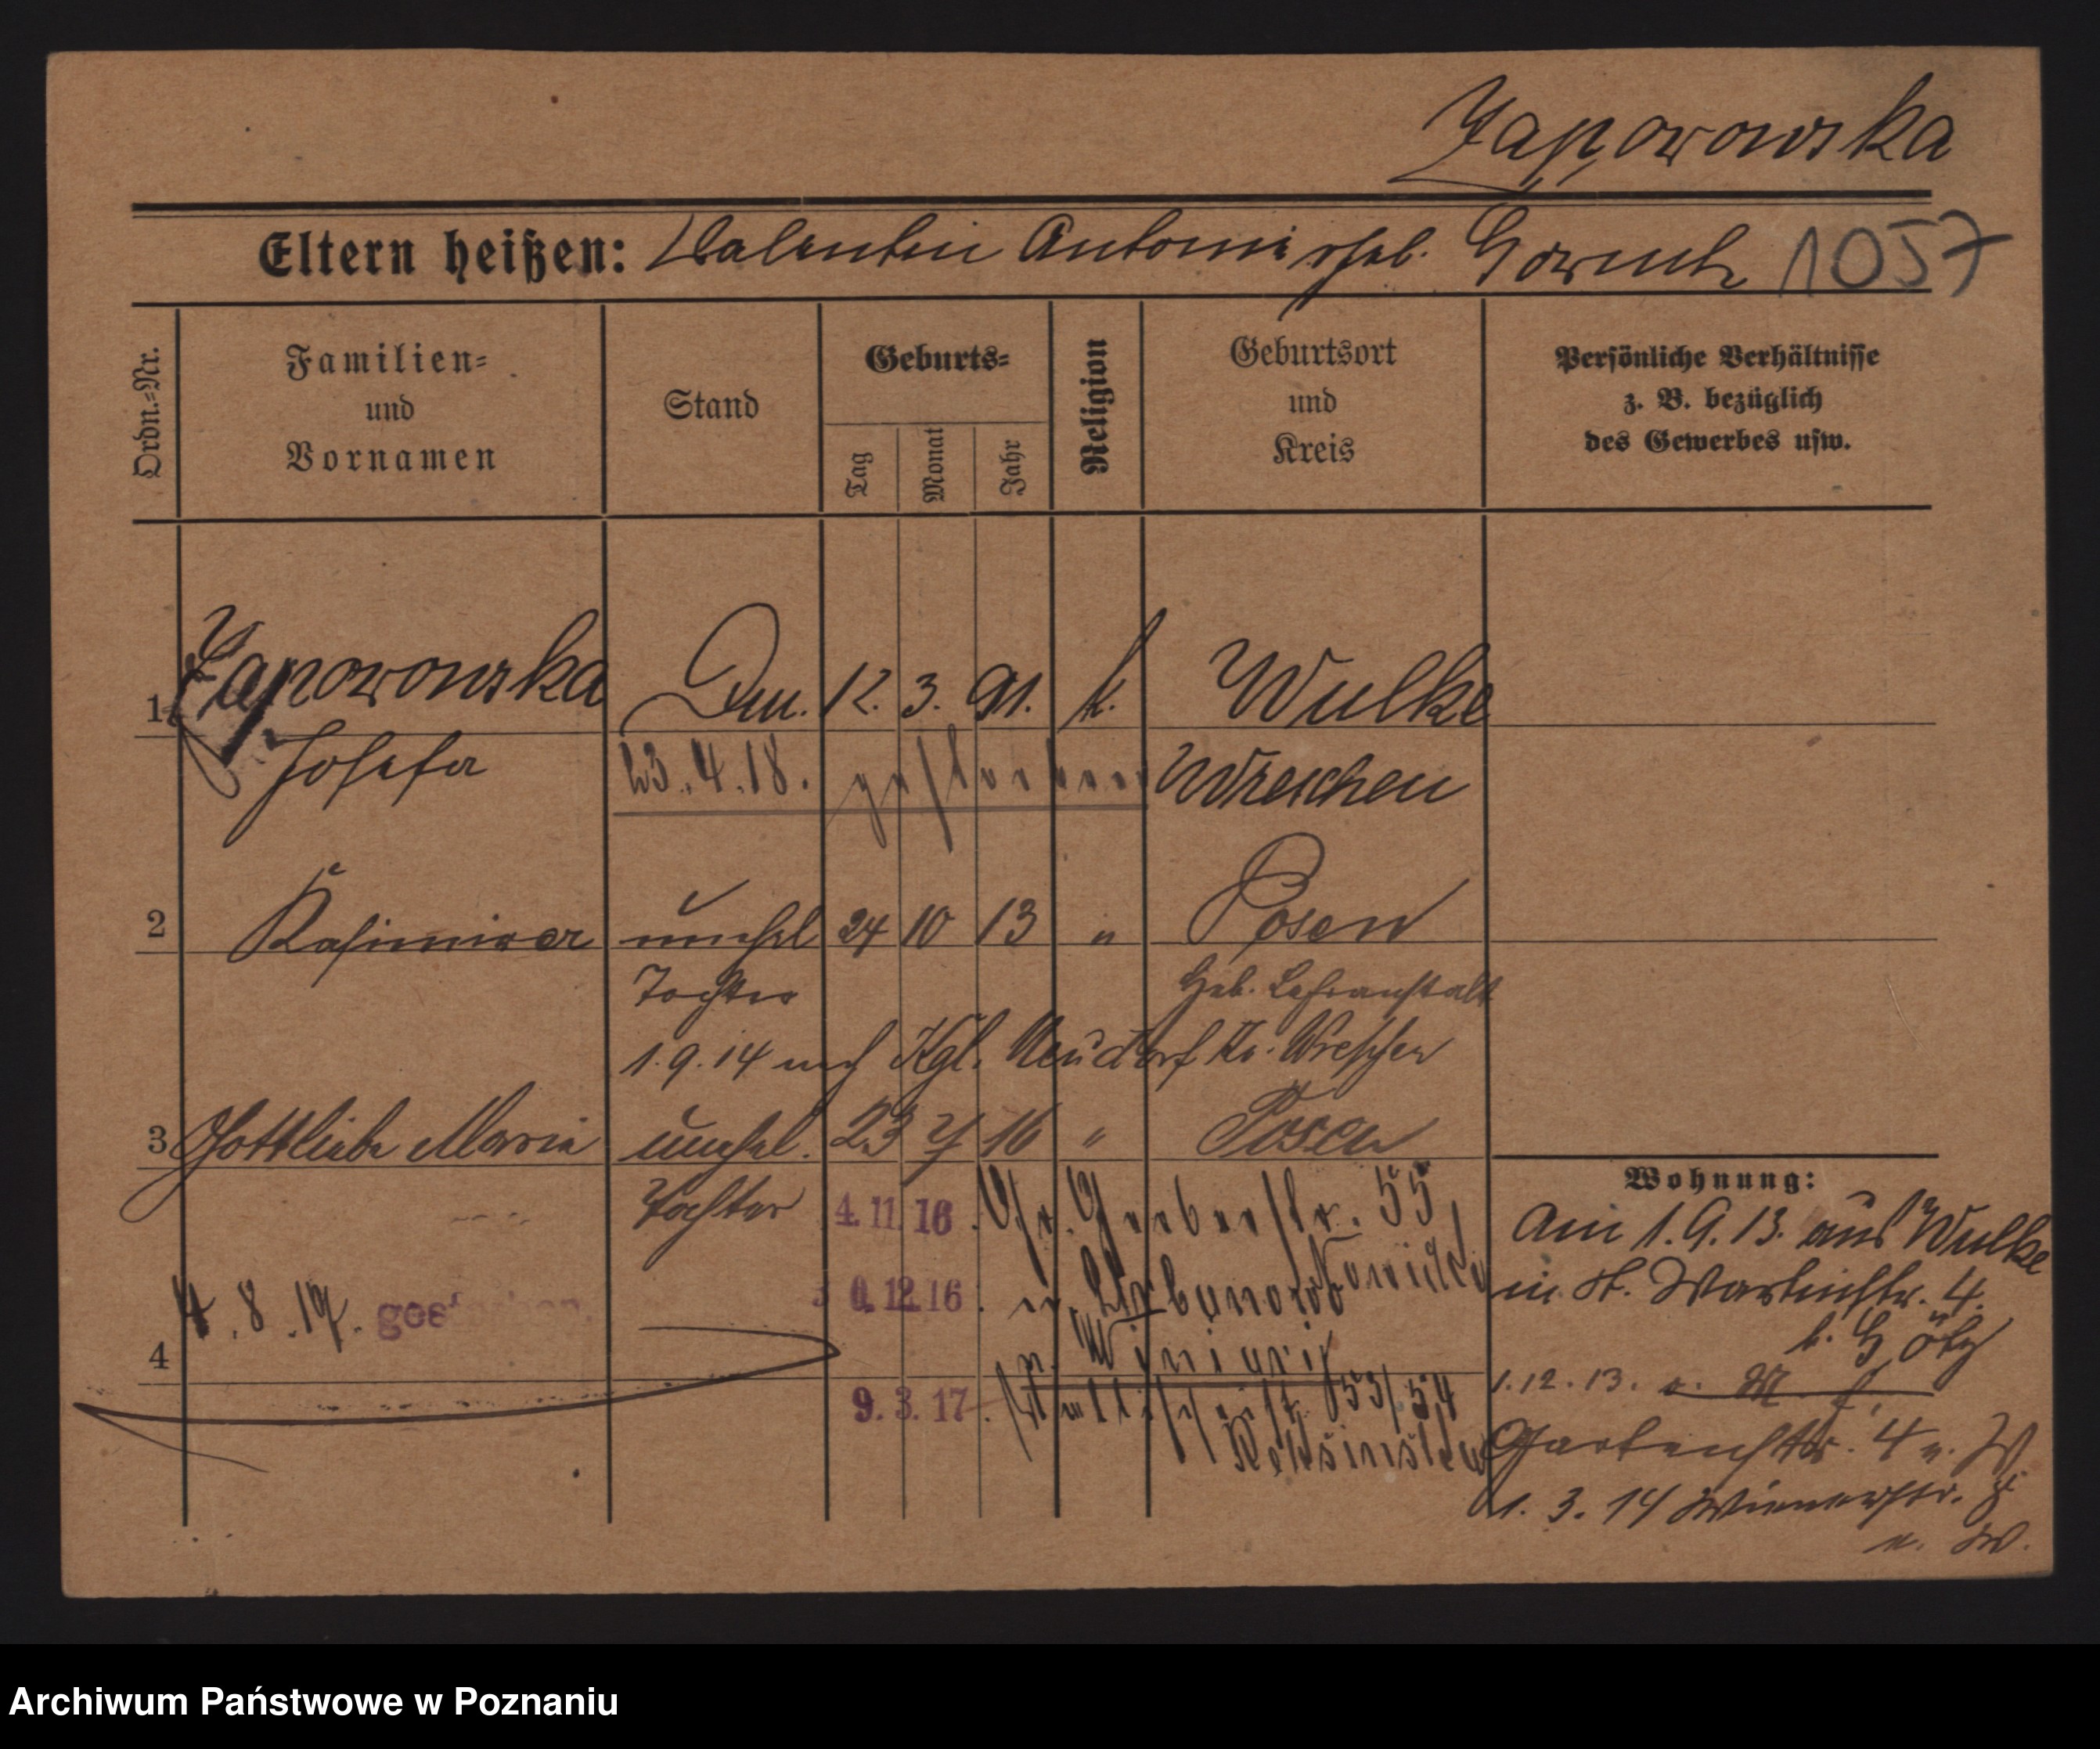 Zaporowska
Eltern heißen: Valentin Antonie geb. Gorniak 1057
Ordn.-Nr.
Familien-
und
Vornamen
Stand
Geburts-
Tag
Monat
Jahr
Religion
Geburtsort
und
Kreis
Persönliche Verhältnisse
z. B. bezüglich
des Gewerbes usw.
1 Zaporowska 12. 3. 91. k. Wulke
Josefa 23.4.18. gestorben Wreschen
2 Kasimiera unehel 24 10 13 " Posen
Tochter Heb. Lehranstalt
1.9.14 nach Kgl. Neudorf Kr. Wreschen
3 Gottliebe Maria unehel. 23 7 16 " Posen
Tochter 4.11.16. Gr. Gerberstr. 55,
30.12.16.
4.8.17. gestorben.
4
9.3.17. 53/54
Wohnung:
Am 1.9.13. aus Wulke
in St. Martinstr. 4.
b. Götz
1.12.13. v. M.
Gartenstr. 4 u. W.
1.3.14 Wienerstr.
u. W.
Archiwum Państwowe w Poznaniu